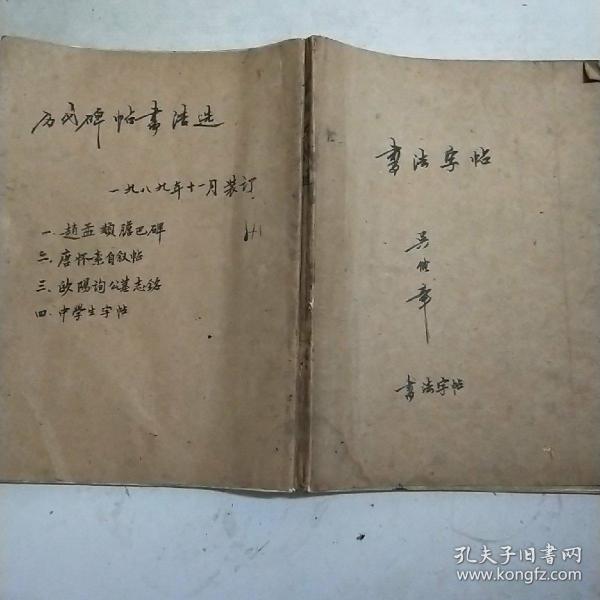 历代碑帖書法选
一九八九年十一月装订
一.趙孟頫膽巴碑
二.唐怀素自叙帖
三.欧陽詢公墓志銘
四.中學生字帖
書法字帖
吴
章
書法字帖
孔夫子旧書网
www.kongfz.com